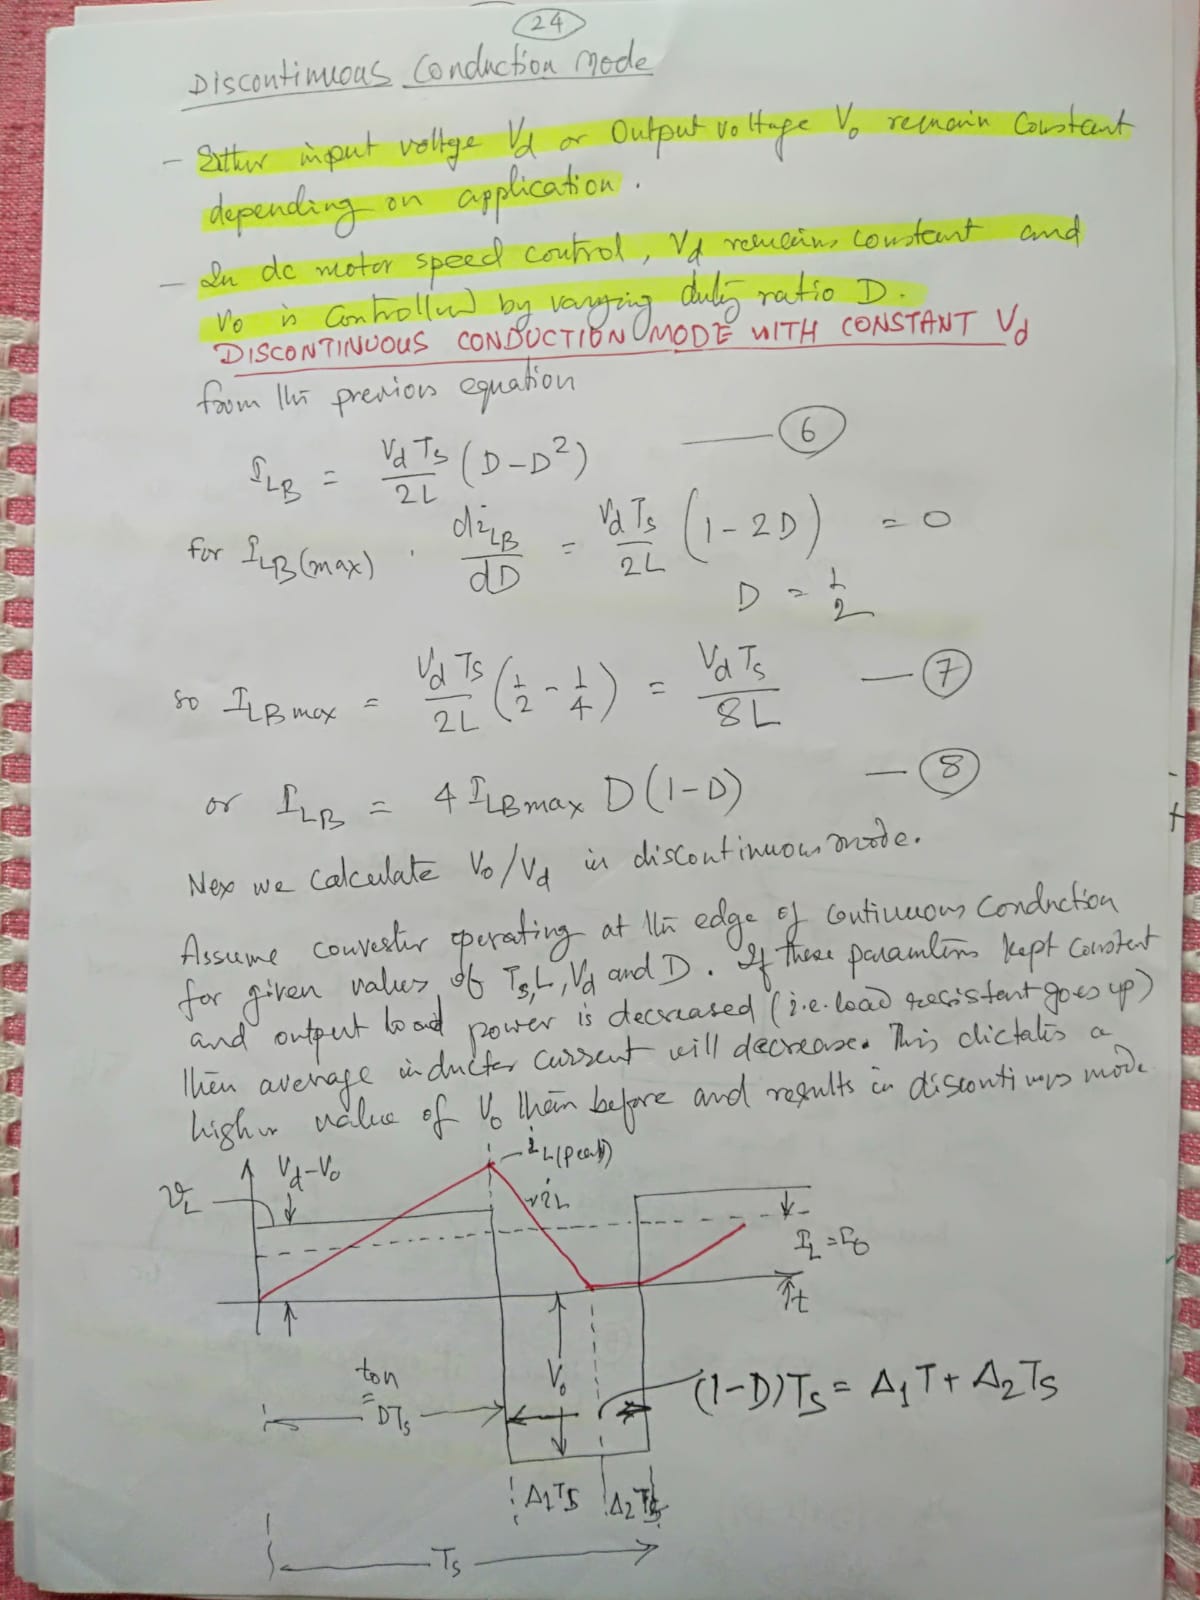 24
Discontinuous Conduction Mode
- Either input voltge Vd or Output voltage Vo remain Constant
depending on application.
- In dc motor speed control, Vd remains constant and
Vo is Controlled by varying duty ratio D.
DISCONTINUOUS CONDUCTION MODE WITH CONSTANT Vd
from the previous equation
I_LB = Vd Ts / 2L (D - D²) — 6
for I_LB(max) . di_LB / dD = Vd Ts / 2L (1 - 2D) = 0
D = 1/2
so I_LB max = Vd Ts / 2L (1/2 - 1/4) = Vd Ts / 8L — 7
or I_LB = 4 I_LB max D(1-D) — 8
Nex we Calculate Vo/Vd in discontinuous mode.
Assume converter operating at the edge of Continuous Conduction
for given values of Ts, L, Vd and D. If these parameters kept constant
and output load power is decreased (i.e. load resistant goes up)
then average inductor current will decrease. This dictates a
higher value of Vo than before and results in discontinuous mode
i_L(peak)
Vd-Vo
v_L
i_L
I_L = I_o
t
ton
=
DTs
Vo
(1-D)Ts = Δ₁T + Δ₂Ts
Δ₁Ts Δ₂Ts
Ts